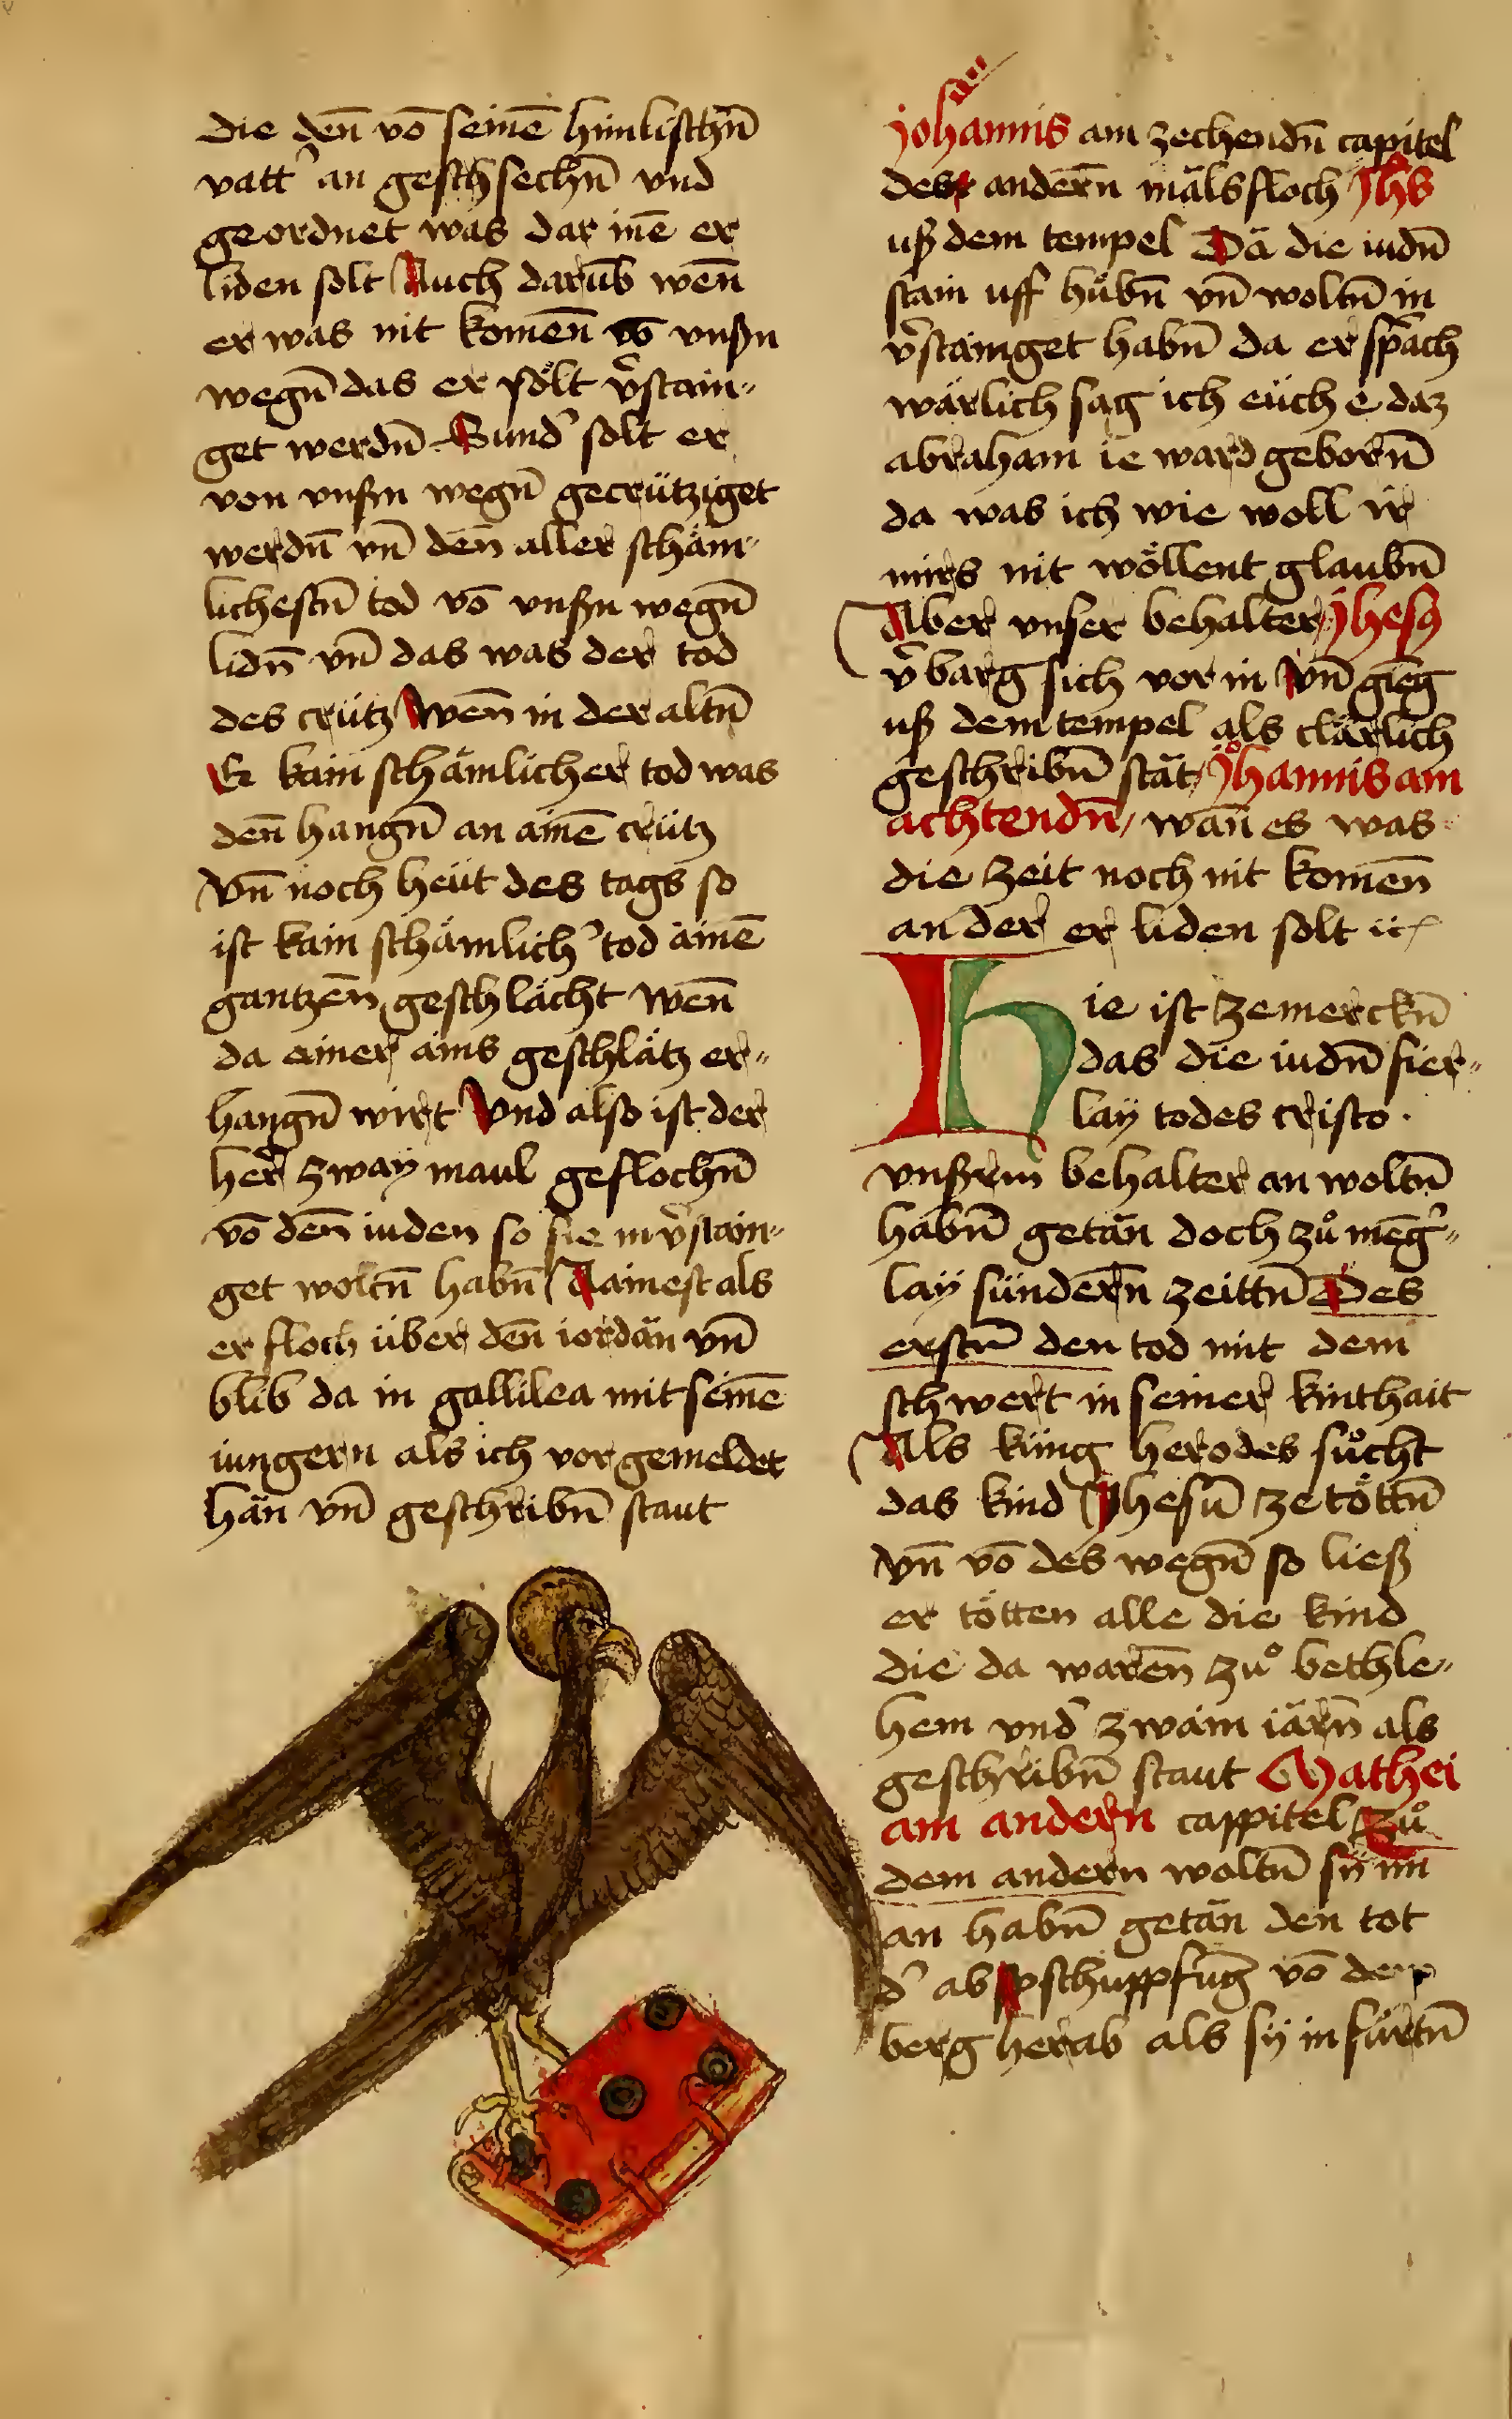 die den̄ vō seinē himlischn̄
vatt᾽ an geschsechn̄ vnd
geordnet was dar inē er
liden solt Auch darūb wen̄
er was nit komen̄ vō vnsßn
wegn̄ das er sölt v᾽stain„
get werdn̄ Sund᾽ solt er
von vnsßn wegn̄ gecrütziget
werdn̄ vn̄ den̄ aller schäm„
lichestn̄ tod vō vnsßn wegn̄
lidn̄ vn̄ das was der tod
des crütz Wen̄ in der altn̄
E kain schämlicher tod was
den̄ hangn̄ an ainē crütz
Vn̄ noch heüt des tags so
ist kain schämlich᾽ tod ainē
gantzen̄ geschlächt Wen̄
da ainer ains geschlätz er„
hangn̄ wirt Vnd also ist der
her᾽ zway maul geflochn̄
vō den̄ iuden so sie in v᾽stain„
get woltn̄ habn̄ Ainest als
er floch über den̄ iordän vn̄
blib da in gallilea mit seinē
iungern als ich vor gemeldet
hän vn̄ geschribn̄ staut
Johannis am zechendn̄ capitel
des andern̄ mäls floch Jhs
uß dem tempel Dä die iudn̄
stain uff hůbn̄ vn̄ woltn̄ in
v᾽stainget habn̄ da er sprach
wärlich sag ich eüch e daz
abraham ie ward geborn̄
da was ich wie woll ir
mirs nit wöllent glaubn̄
Aber vnser behalter Jhesus
v᾽barg sich vor in Vn̄ gieg
uß dem tempel als clärlich
geschribn̄ stät Johannis am
achtendn̄ / wan̄ es was
die zeit noch nit komen̄
an der er liden solt ꝛc
Hie ist ze merckn̄
das die iudn̄ fier„
lay todes cristo ·
vnßrm behalter an woltn̄
habn̄ getän doch zů mēg᾽„
lay sündern̄ zeittn̄ Des
erstn̄ den tod mit dem
schwert in seiner kinthait
Als küng herodes sůcht
das kind Jhesū ze töttn̄
vn̄ vō des wegn̄ so ließ
er tötten alle die kind
die da waren̄ zů bethle„
hem vnd᾽ zwain iärn̄ als
geschribn̄ staut Mathei
am andern cappitel Zů
dem andern woltn̄ sÿ im
an habn̄ getän den tot
d᾽ abschuppfūg vō dem
berg herab als sÿ in fůrtn̄